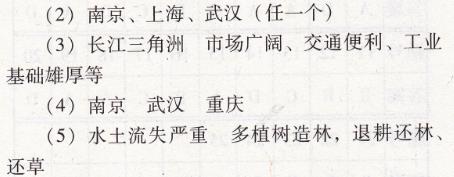 (2) 南京、上海、武汉(任一个)
(3) 长江三角洲　市场广阔、交通便利、工业
基础雄厚等
(4) 南京　武汉　重庆
(5) 水土流失严重　多植树造林，退耕还林、
还草